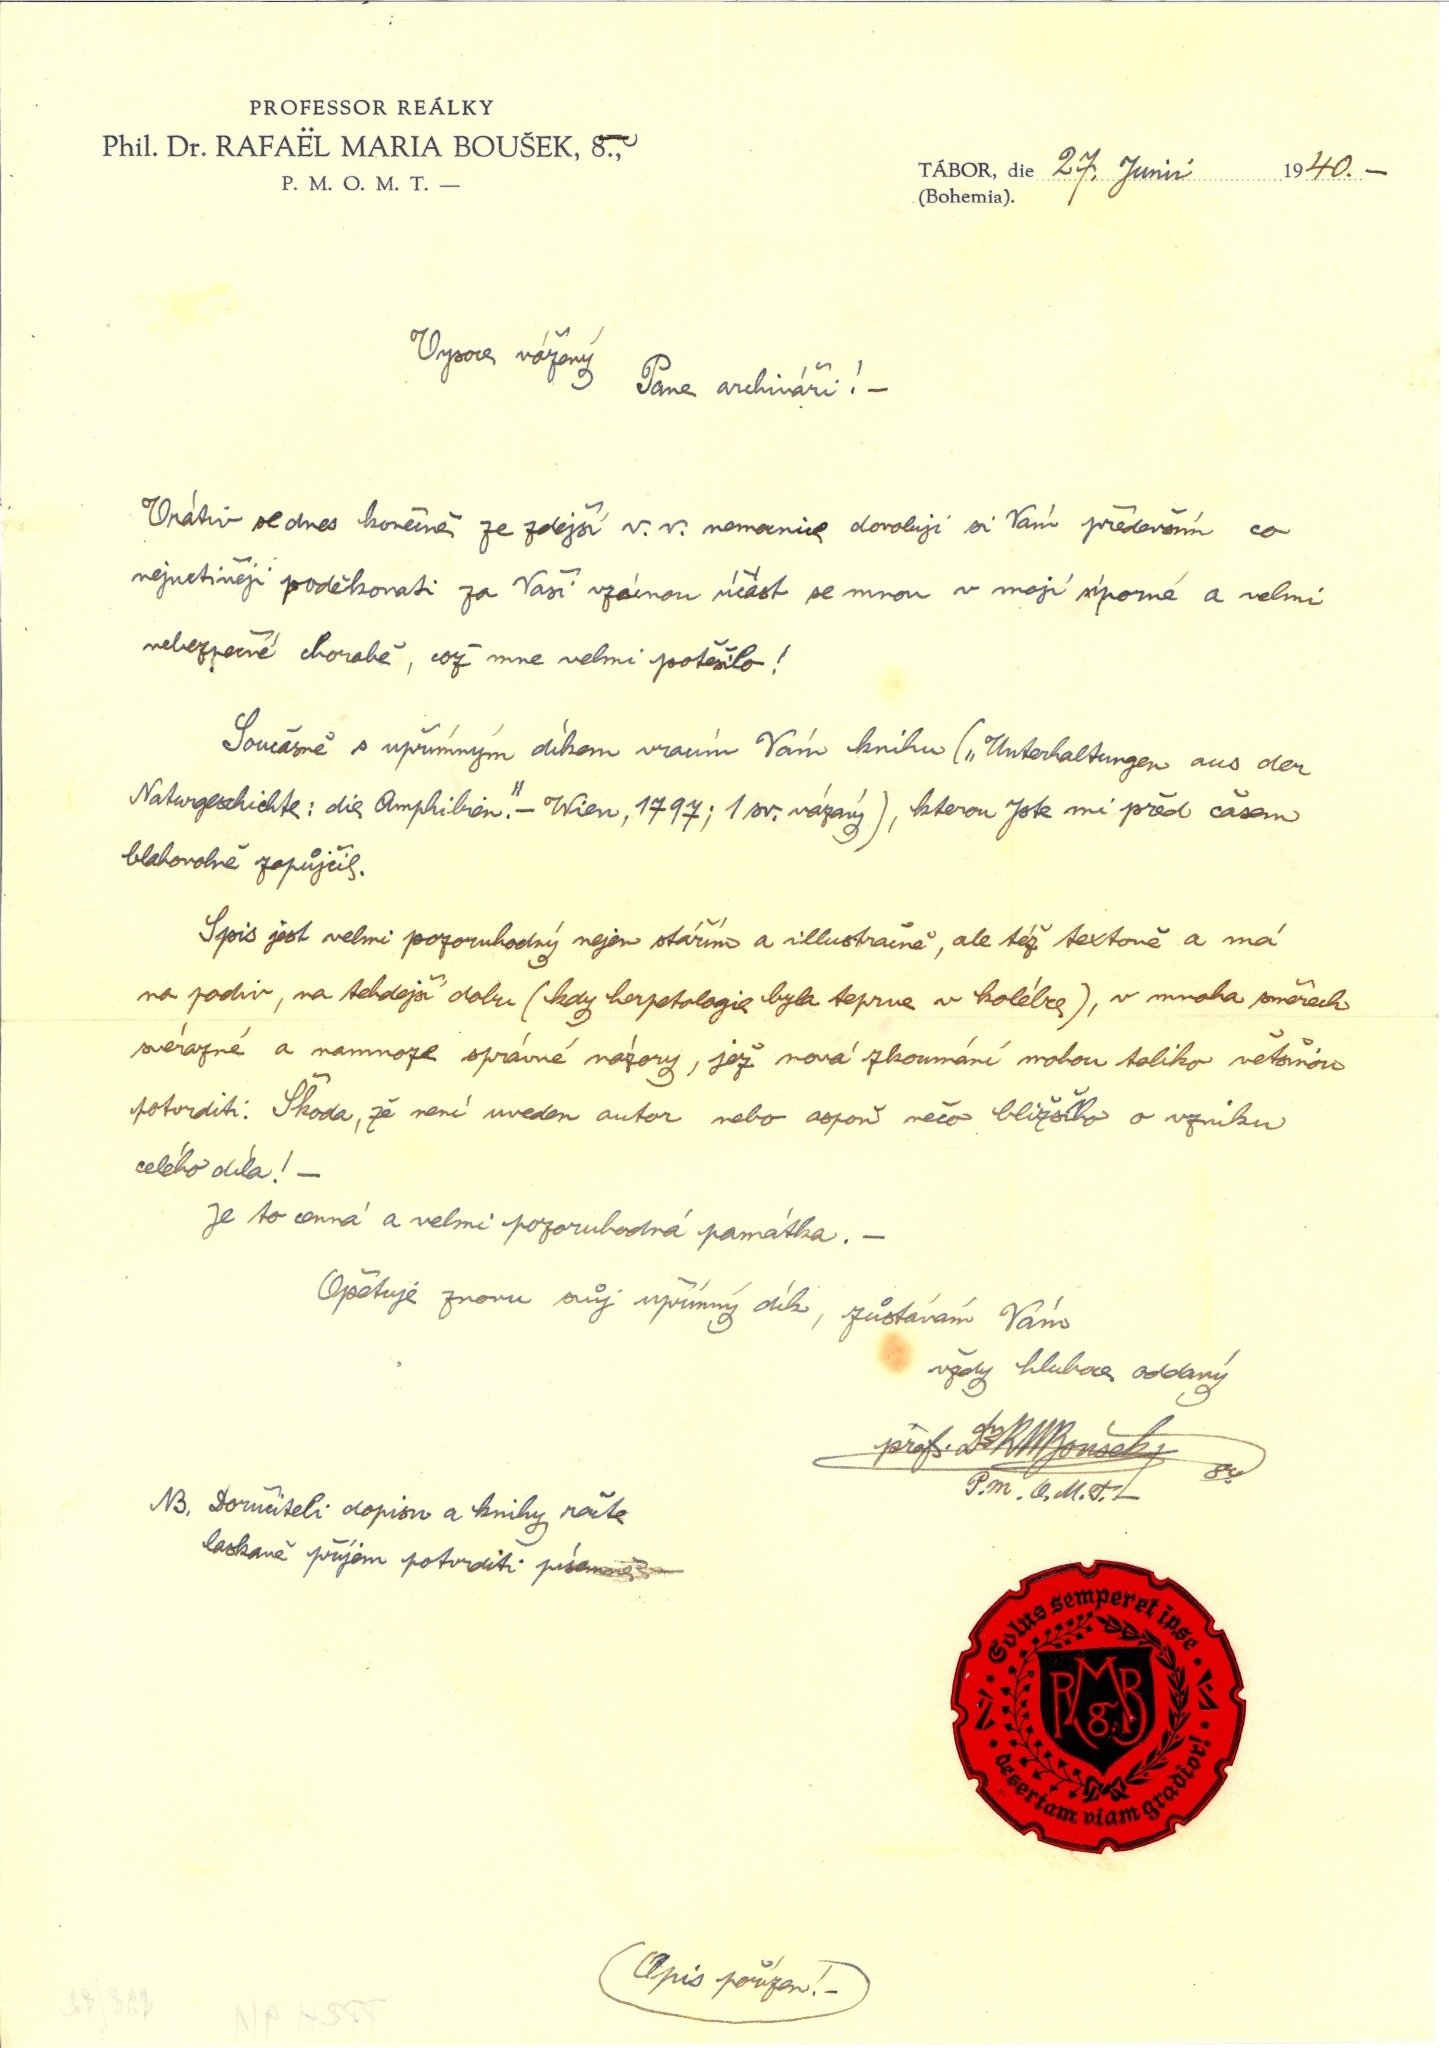 PROFESSOR REÁLKY
Phil. Dr. RAFAËL MARIA BOUŠEK, 8.,
P. M. O. M. T. —
TÁBOR, die 27. Junii 1940. —
(Bohemia).
Vysoce vážený
Pane archiváři! —
Vrátiv se dnes konečně ze zdejší v. v. nemocnice dovoluji si Vám především co
nejuctivěji poděkovati za Vaší vzácnou účast se mnou v mojí úporné a velmi
nebezpečné chorobě, což mne velmi potěšilo!
Současně s upřímným díkem vracím Vám knihu („Unterhaltungen aus der
Naturgeschichte: die Amphibien.“ — Wien, 1797; 1 sv. vázaný), kterou jste mi před časem
blahovolně zapůjčil.
Spis jest velmi pozoruhodný nejen stářím a illustračně, ale též textově a má
na podiv, na tehdejší dobu (kdy herpetologie byla teprve v kolébce), v mnoha směrech
svérázné a namnoze správné názory, jež nová zkoumání mohou toliko většinou
potvrditi. Škoda, že není uveden autor nebo aspoň něco bližšího o vzniku
celého díla! —
Je to cenná a velmi pozoruhodná památka. —
Opětuje znovu svůj upřímný dík, zůstávám Vám
vždy hluboce oddaný
prof. Dr RMBoušek
8.
P. M. O. M. T. —
NB. Doručiteli dopisu a knihy račte
laskavě příjem potvrditi písemně —
Solus semper et ipse
RMB
8.
desertam viam gradior!
Opis pořízen! —